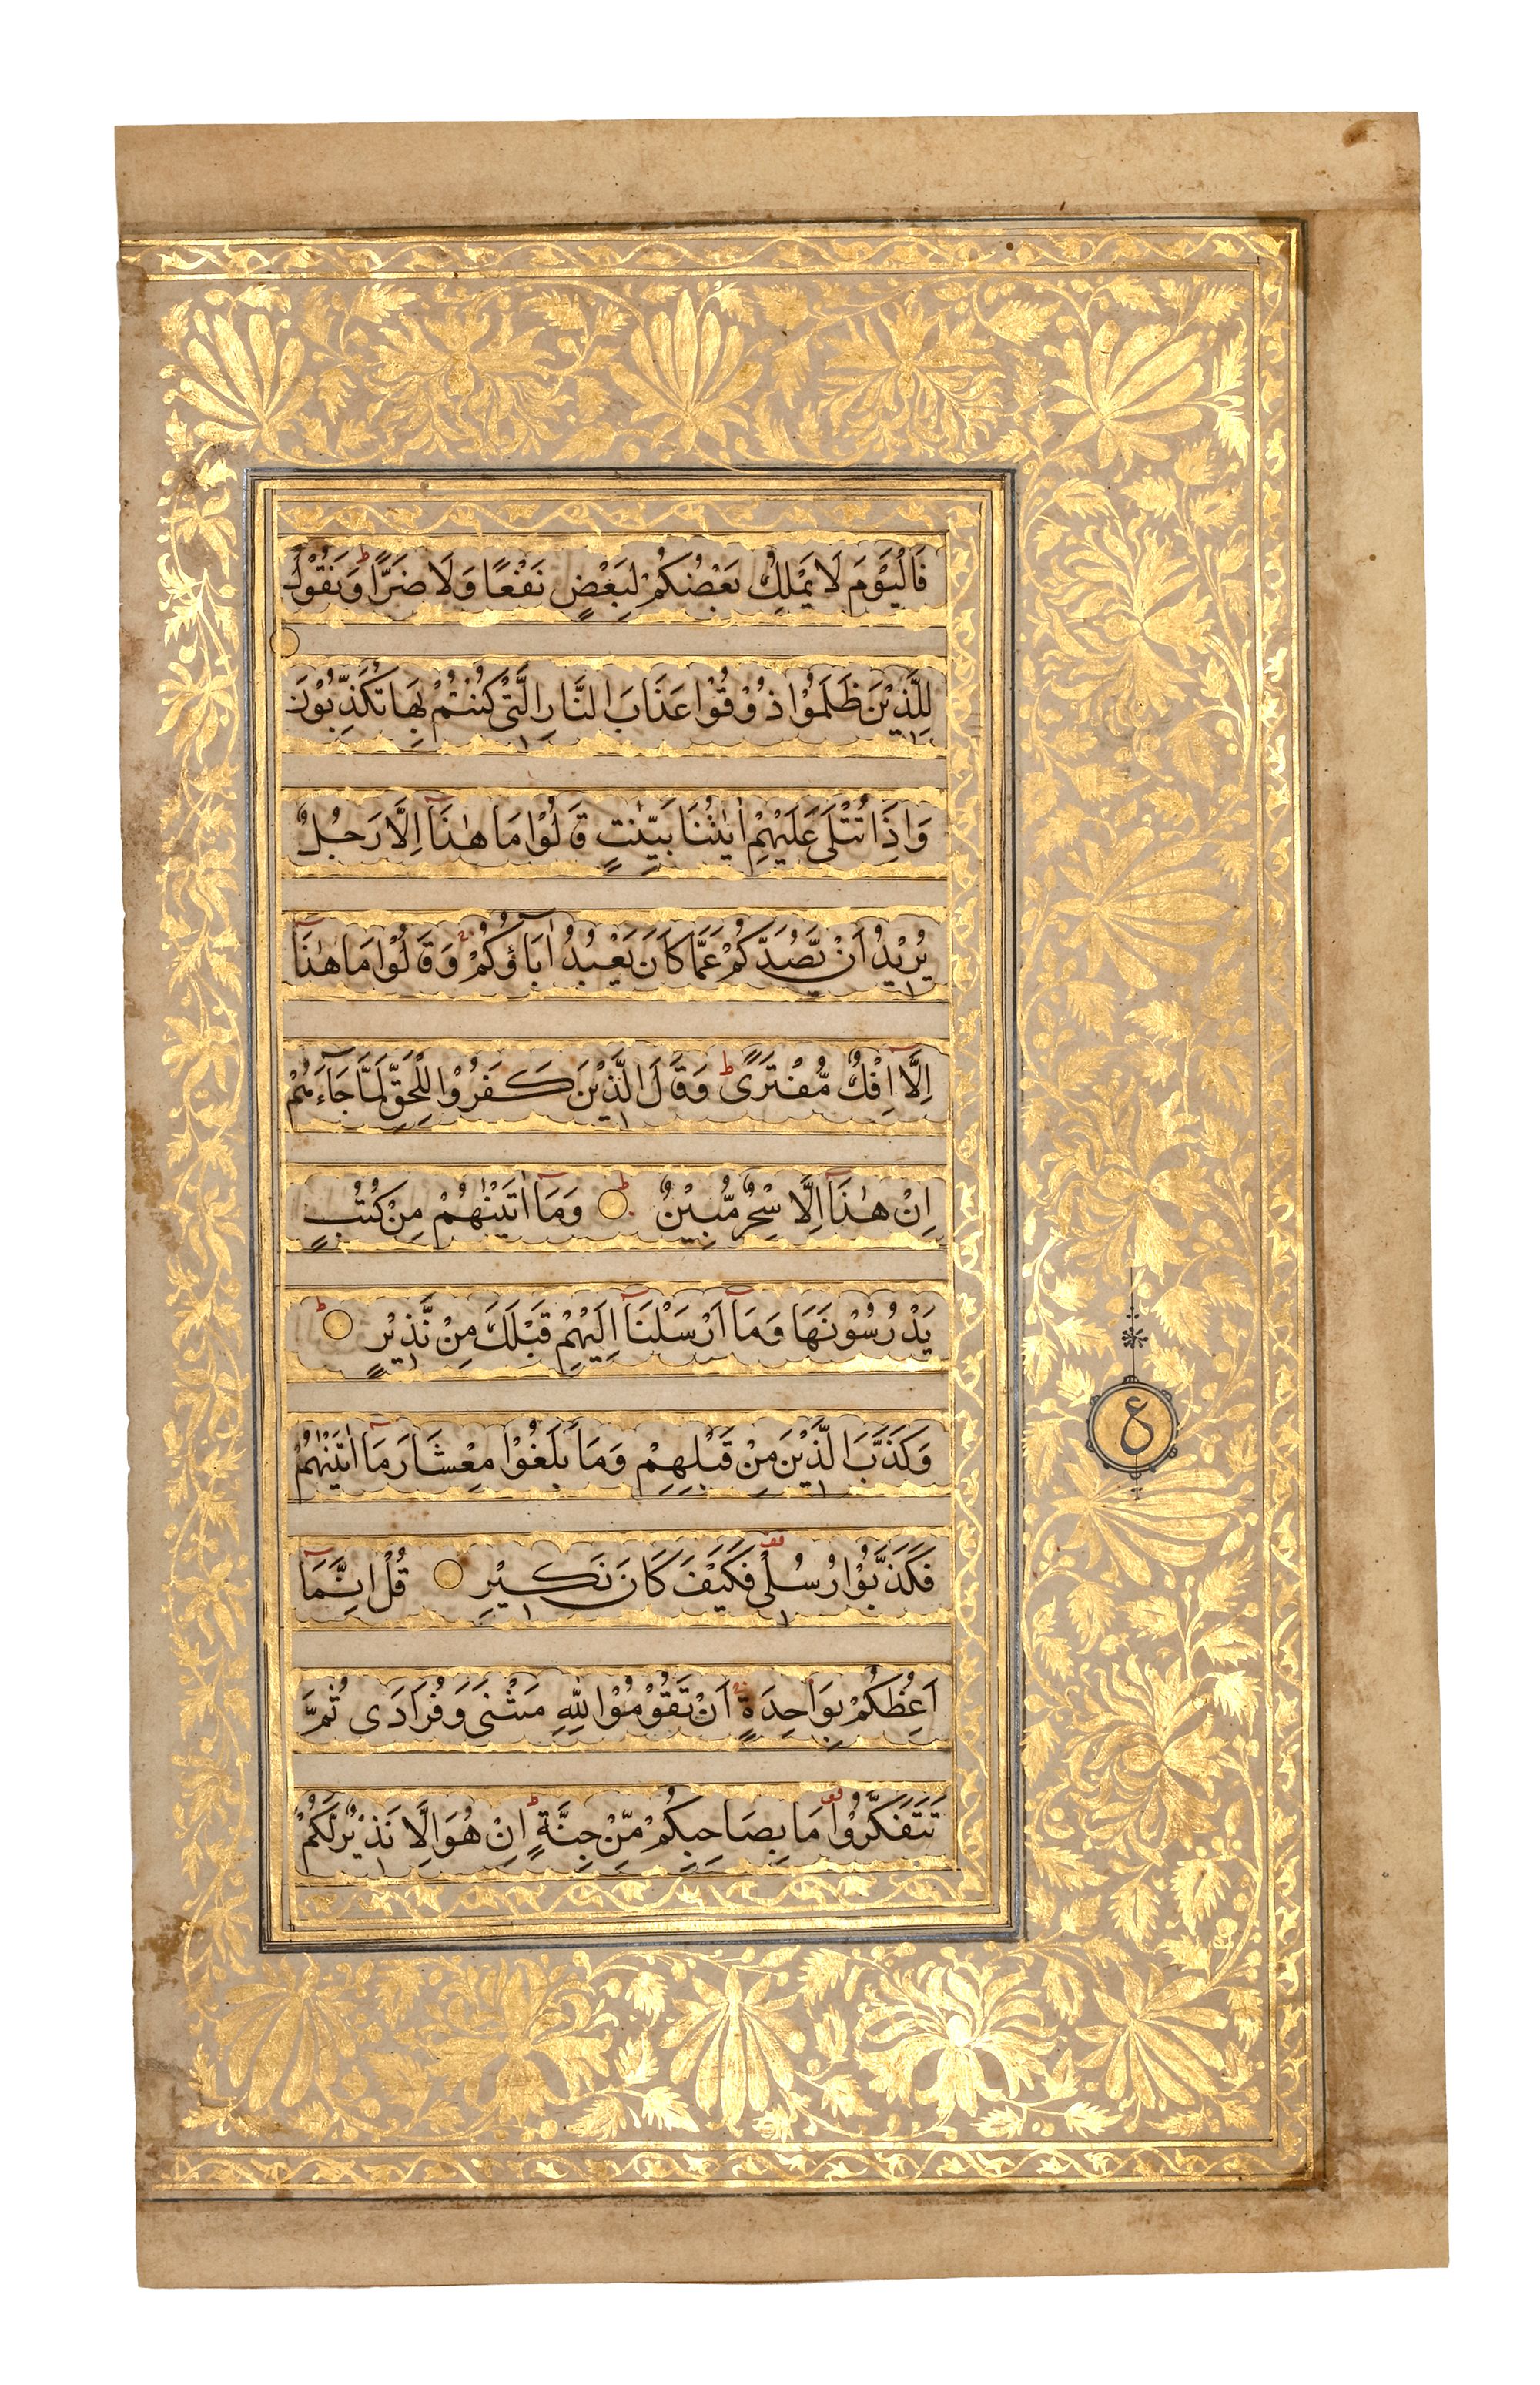 فَالْيَوْمَ لَا يَمْلِكُ بَعْضُكُمْ لِبَعْضٍ نَفْعًا وَلَا ضَرًّا ط وَنَقُوْلُ
لِلَّذِيْنَ ظَلَمُوْا ذُوْقُوْا عَذَابَ النَّارِ الَّتِيْ كُنْتُمْ بِهَا تُكَذِّبُوْنَ
وَاِذَا تُتْلٰى عَلَيْهِمْ اٰيٰتُنَا بَيِّنٰتٍ قَالُوْا مَا هٰذَآ اِلَّا رَجُلٌ
يُرِيْدُ اَنْ يَّصُدَّكُمْ عَمَّا كَانَ يَعْبُدُ اٰبَاؤُكُمْ وَقَالُوْا مَا هٰذَآ
اِلَّآ اِفْكٌ مُّفْتَرًى ط وَقَالَ الَّذِيْنَ كَفَرُوْا لِلْحَقِّ لَمَّا جَآءَهُمْ
اِنْ هٰذَآ اِلَّا سِحْرٌ مُّبِيْنٌ ط وَمَآ اٰتَيْنٰهُمْ مِنْ كُتُبٍ
يَدْرُسُوْنَهَا وَمَآ اَرْسَلْنَآ اِلَيْهِمْ قَبْلَكَ مِنْ نَّذِيْرٍ ط
وَكَذَّبَ الَّذِيْنَ مِنْ قَبْلِهِمْ وَمَا بَلَغُوْا مِعْشَارَ مَآ اٰتَيْنٰهُمْ
ع
فَكَذَّبُوْا رُسُلِيْ قف فَكَيْفَ كَانَ نَكِيْرِ قُلْ اِنَّمَآ
اَعِظُكُمْ بِوَاحِدَةٍ اَنْ تَقُوْمُوْا لِلّٰهِ مَثْنٰى وَفُرَادٰى ثُمَّ
تَتَفَكَّرُوْا قف مَا بِصَاحِبِكُمْ مِّنْ جِنَّةٍ ط اِنْ هُوَ اِلَّا نَذِيْرٌ لَّكُمْ